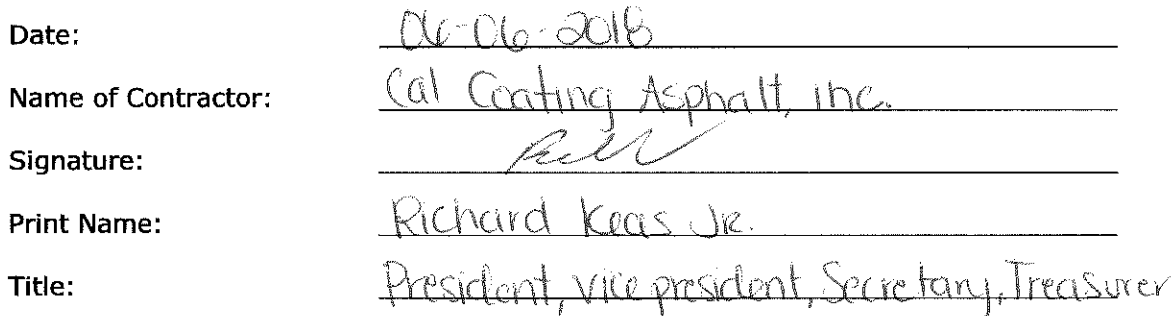 Date: 06-06-2018
Name of Contractor: Cal Coating Asphalt, inc.
Signature:
Print Name: Richard Keas Jr.
Title: President, vice president, Secretary, Treasurer